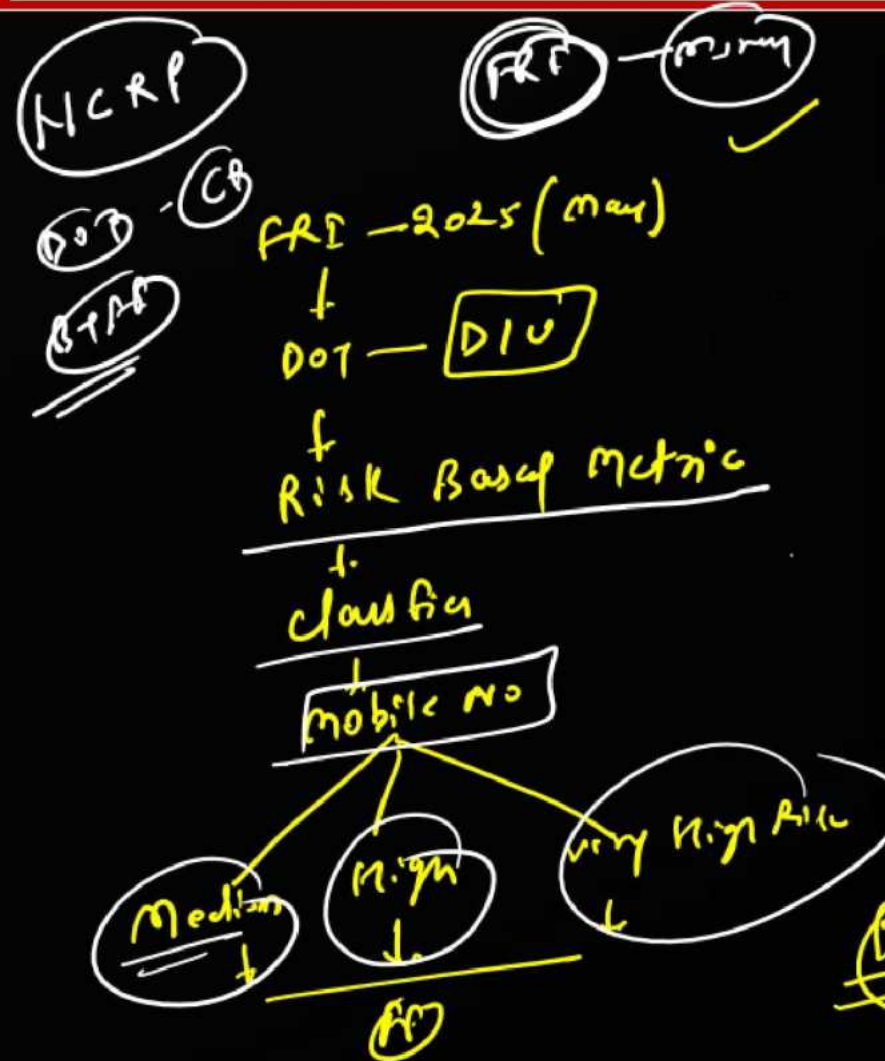 NCRP
FRI
CB
FRI – 2025 (May)
DOT – DIU
Risk Based Metric
Mobile No
Medium
High
Very High Risk